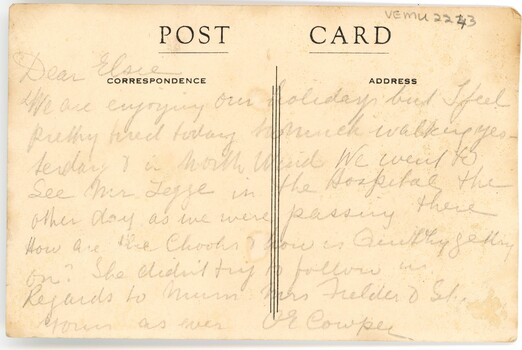 VEMU 2243
POST CARD
Dear Elsie
CORRESPONDENCE ADDRESS
We are enjoying our holidays but I feel
pretty tired today too much walking yes-
terday & a North Wind We went to
See Mr Legge in the Hospital the
other day as we were passing there
How are the Chooks & how is getting
on? She didn't try to follow us.
Regards to Mum Mrs Fielder &
yours as ever Cowper